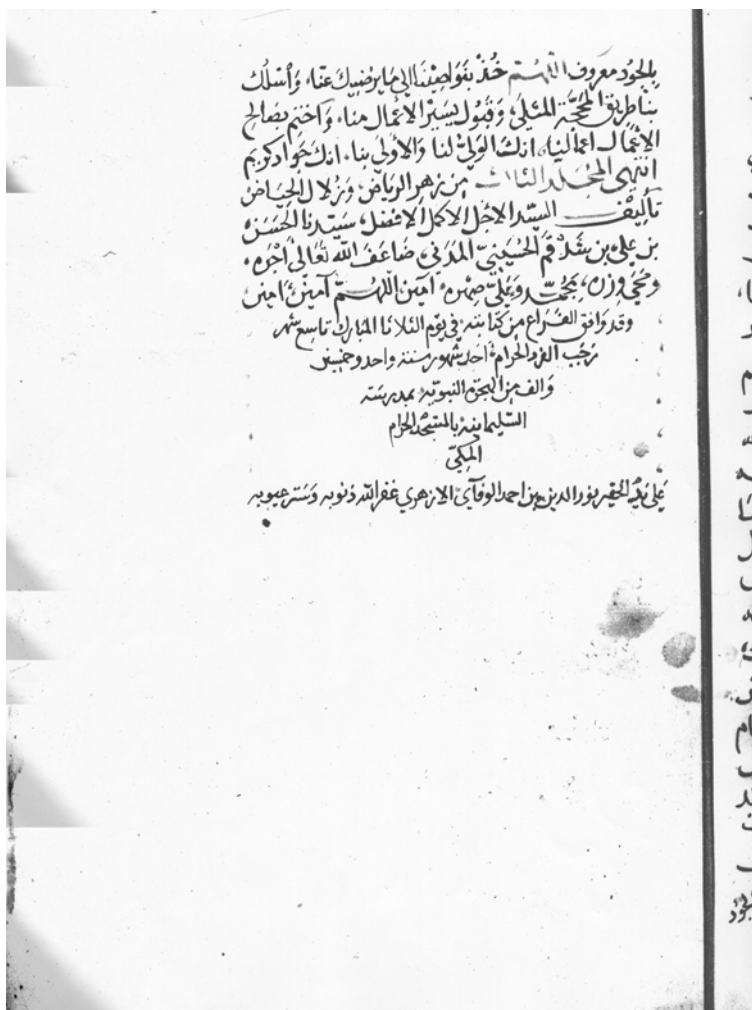 بالجود معروف اللهم خذ بنواصينا الى ما يرضيك عنا، واسلك
بنا طريق المحجة المثلى، وقبول يسير الاعمال منا، واختم بصالح
الاعمال اعمالنا، انك الولي لنا والأولى بنا، انك جواد كريم
انتهى المجلد الثالث من زهر الرياض وزلال الحياض
تأليف السيد الاجل الاكمل الافضل سيدنا الحسن
بن علي بن شدقم الحسيني المدني، ضاعف الله تعالى اجره،
ومحي وزره، بمحمد وعلي صهره، امين اللهم آمين آمين
وقد وافق الفراغ من كتابته في يوم الثلاثا المبارك تاسع شهر
رجب الفرد الحرام احد شهور سنة واحد وخمسين
والف من الهجرة النبوية بمدرسة
السليمانية بالمسجد الحرام
المكي
على يد الحقير نور الدين بن احمد الوفآئ الازهري غفر الله ذنوبه وستر عيوبه
الجود